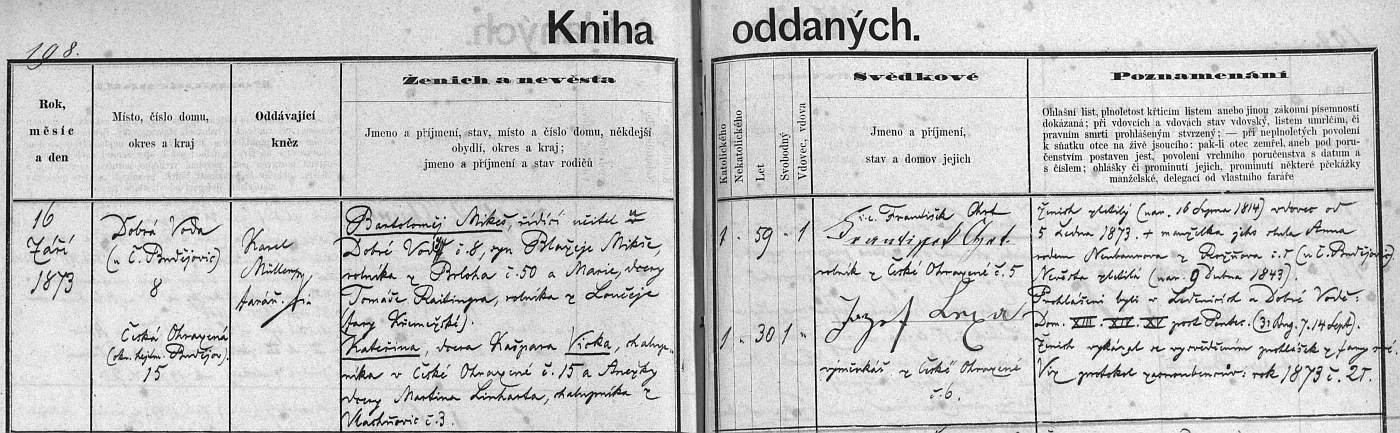 Kniha oddaných.
198.
Rok, měsíc a den
Místo, číslo domu, okres a kraj
Oddávající kněz
Ženich a nevěsta
Jmeno a příjmení, stav, místo a číslo domu, někdejší
obydlí, okres a kraj;
jmeno a příjmení a stav rodičů
Katolického
Nekatolického
Let
Svobodný
Vdovec, vdova
Svědkové
Jmeno a příjmení,
stav a domov jejich
Poznamenání
Ohlašní list, plnoletost křticím listem anebo jinou zákonní písemností
dokázaná; při vdovcích a vdovách stav vdovský, listem umrlčím, či
pravním smrti prohlášeným stvrzený; — při neplnoletých povolení
k sňatku otce na živě jsoucího; pak-li otec zemřel, aneb pod poru-
čenstvím postaven jest, povolení vrchního poručenstva s datum a
s číslem; ohlášky či prominutí jejich, prominutí některé překážky
manželské, delegací od vlastního faráře
16
Září
1873
Dobrá Voda
(u Č. Budějovic)
8
Česká Ohrazená
(okr. hejtm. Budějov.)
15
Karel
Müllenz,
farář
Bartoloměj Mikeš, řídící učitel v
Dobré Vodě č. 8, syn Blažeje Mikše,
rolníka z Brloha č. 50 a Marie, dcery
Tomáše Raitingra, rolníka z Loučeje
(fary Křemežské).
Kateřina, dcera Kašpara Vicka, chalup-
níka v České Ohrazené č. 15 a Anežky
dcery Martina Linharta, chalupníka z
Vlachnovic č. 3.
1 " 59 " 1
1 " 30 1 "
František Chrt
František Chrt
rolník z České Ohrazené č. 5
Jozef Lexa
výminkář z České Ohrazené
č. 6.
Ženich zletilý (nar. 16 Srpna 1814) vdovec od
5 Ledna 1873. + manželka jeho slula Anna
rodem Neubauerova z Rožňova č. 5 (u Č. Budějovic)
Nevěsta zletilá (nar. 9 Dubna 1843).
Prohlášeni byli v Ledenicích a Dobré Vodě:
Dom. XIII. XIV. XV post Pentec. (31 Aug. 7. 14 Sept).
Ženich vykázal se vysvědčením prohlášek z fary své.
Viz protokol zasnoubencův: rok 1873 č. 25.